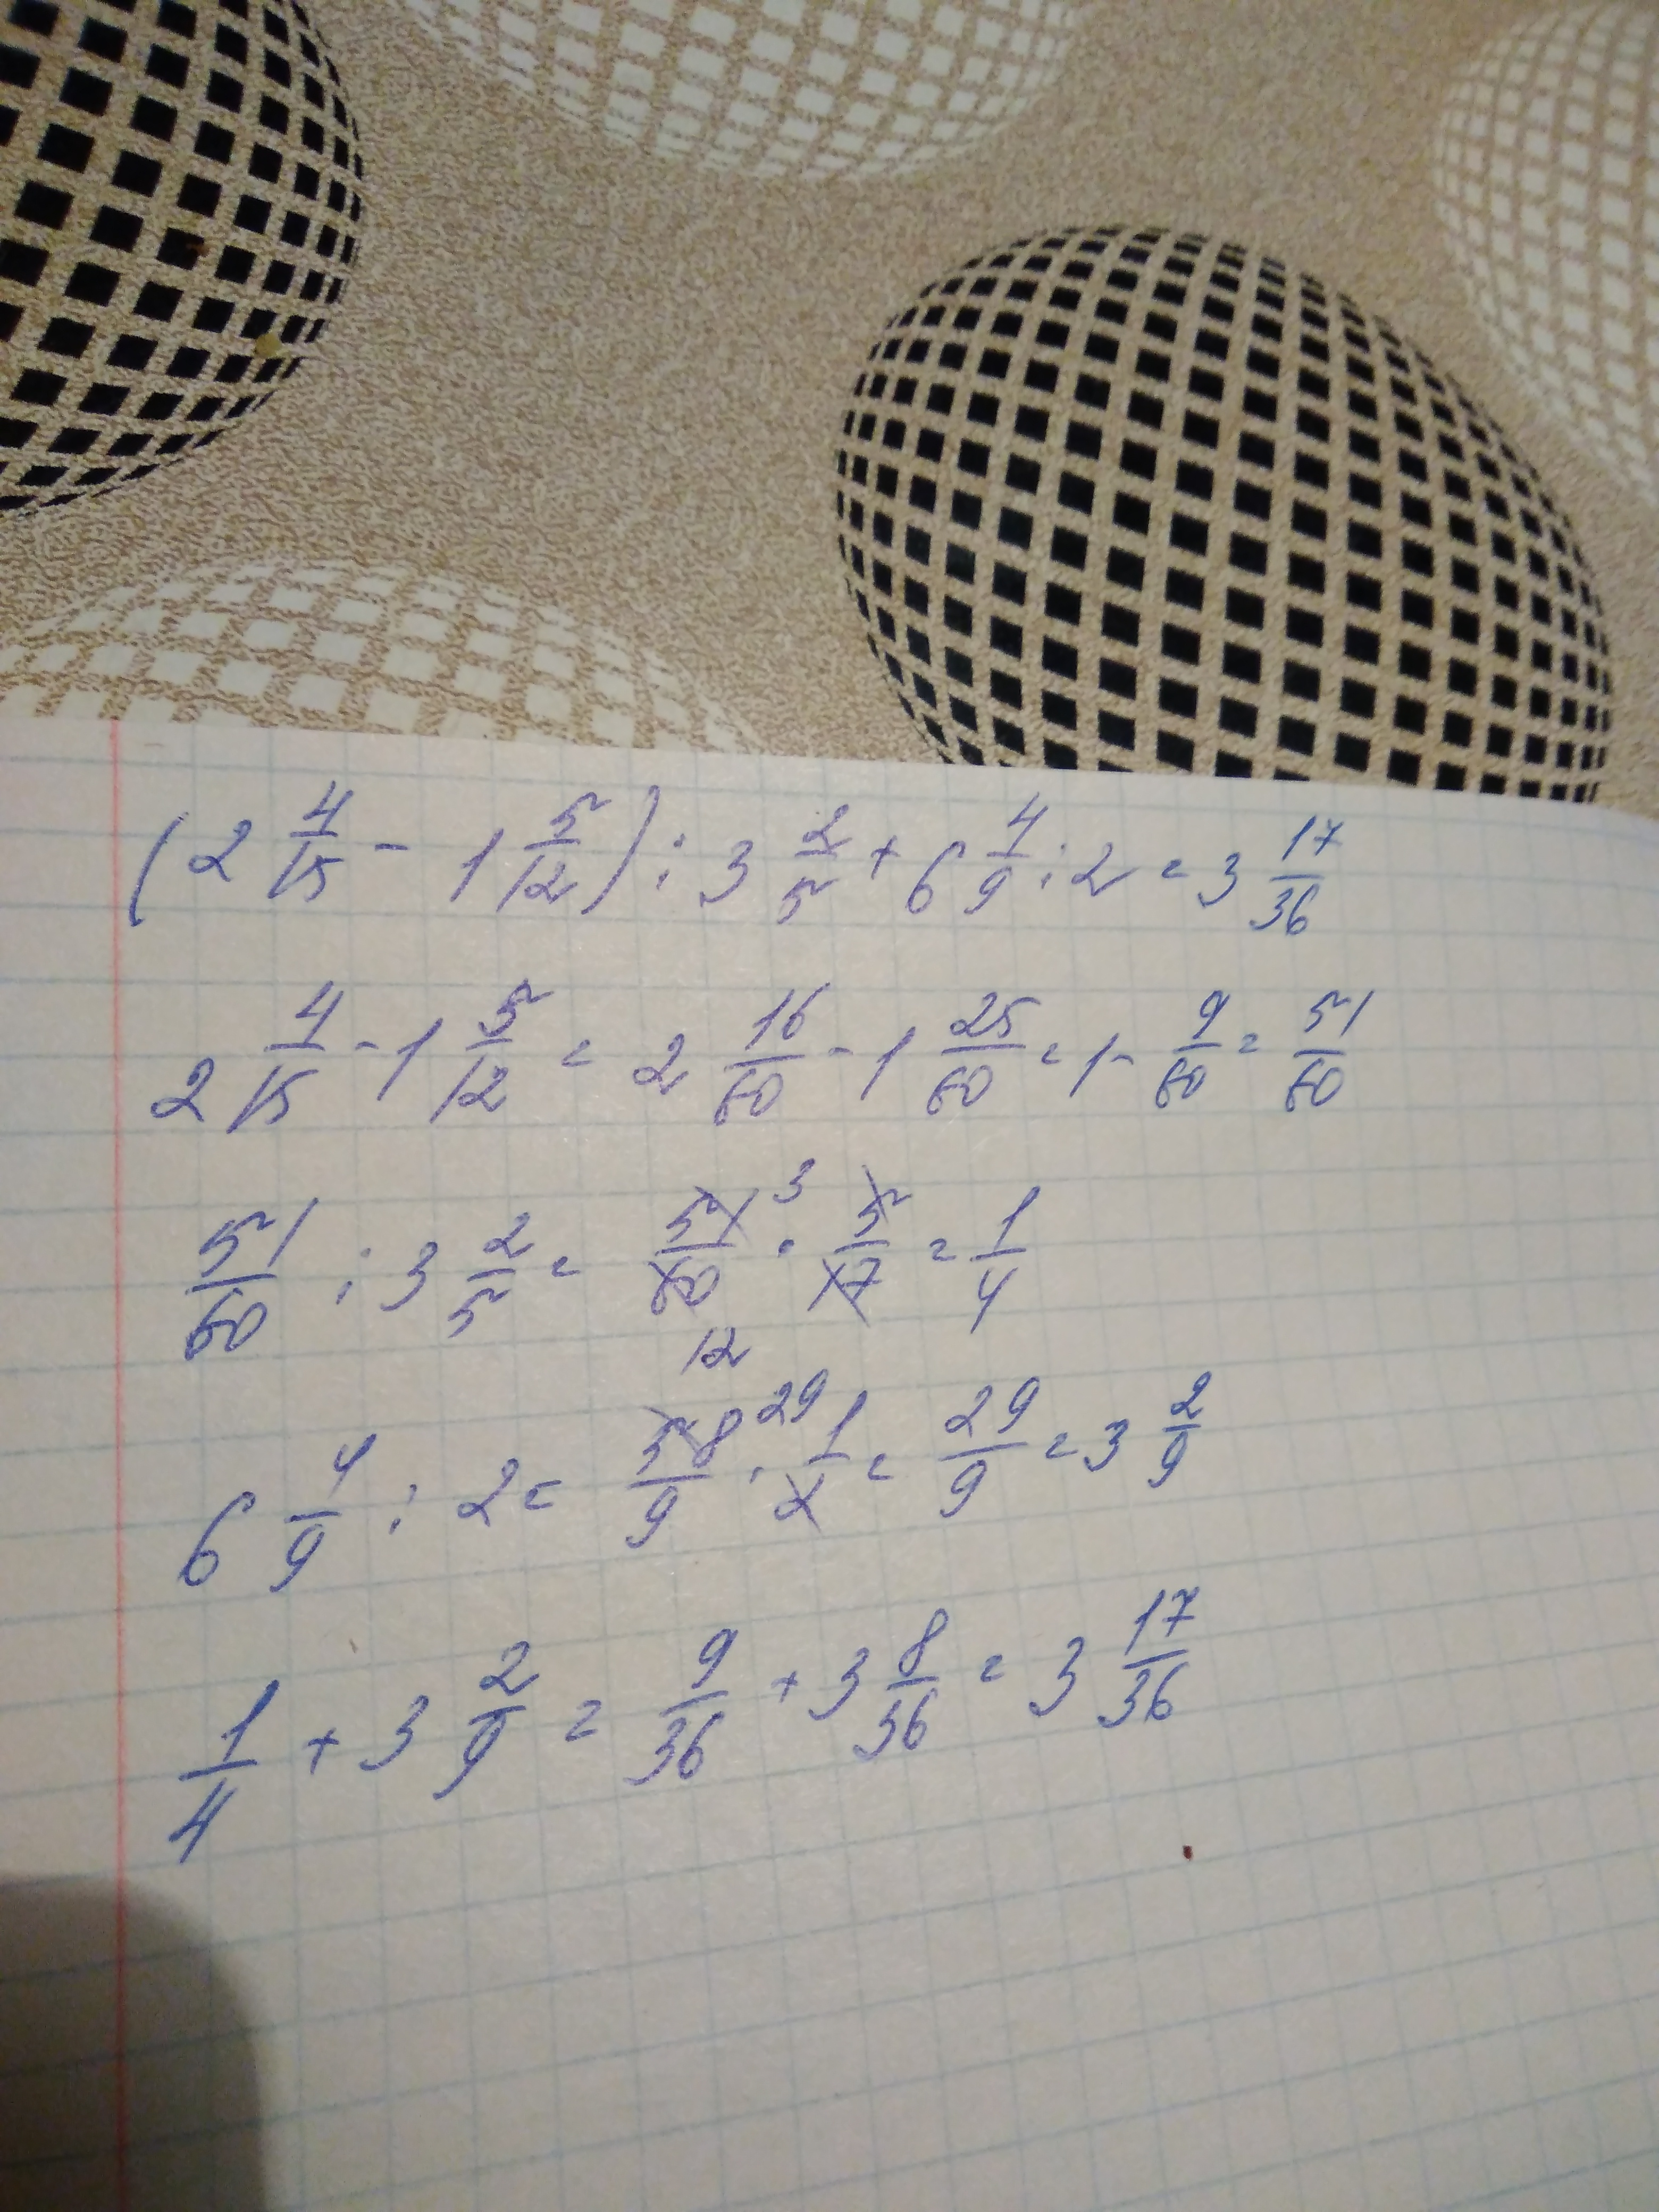 (2 4/15 - 1 5/12) : 3 2/5 + 6 4/9 : 2 = 3 17/36
2 4/15 - 1 5/12 = 2 16/60 - 1 25/60 = 1 - 9/60 = 51/60
51/60 : 3 2/5 = 51/60 3 12 · 5/17 = 1/4
6 4/9 : 2 = 58/9 29 · 1/2 = 29/9 = 3 2/9
1/4 + 3 2/9 = 9/36 + 3 8/36 = 3 17/36